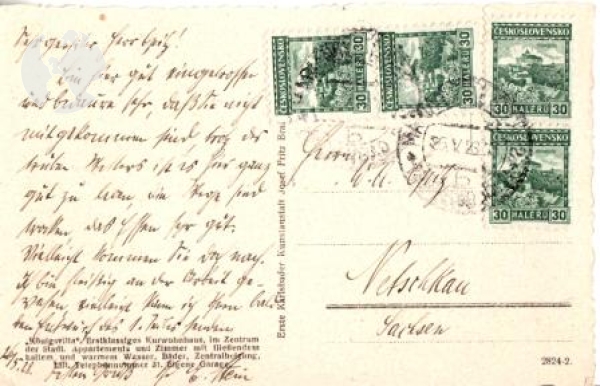 Sehr geehrter Herr Spitz!
Bin hier gut eingetroffen
und bedaure sehr, daß Sie nicht
mitgekommen sind trotz des
trüben Wetters ist es hier ganz
gut zu leben, die Wege sind
trocken, das Essen sehr gut.
Vielleicht kommen Sie doch nach.
Ich bin fleißig an der Arbeit ge-
wesen, vielleicht kann ich Ihnen bald
den
senden
"Königsvilla" Erstklassiges Kurwohnhaus, im Zentrum
der Stadt. Appartements und Zimmer mit fließendem
kaltem und warmem Wasser, Bäder, Zentralheizung,
Lift. Telephonnummer 21. Eigene Garage.
Erste Karlsbader Kunstanstalt Josef Fritz
ČESKOSLOVENSKO
30 HALERU 30
ČESKOSLOVENSKO
30 HALERU 30
ČESKOSLOVENSKO
30 HALERU 30
ČESKOSLOVENSKO
30 HALERU 30
Herrn
Spitz
Netschkau
Sachsen
2824-2.